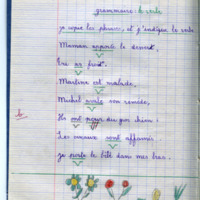 grammaire : le verbe
je copie les phrases, et j'indique le verbe
Maman apporte le dessert.
Eric a froid.
Martine est malade.
Michel avale son remède.
Ils ont peur du gros chien.
Les oiseaux sont affamés.
je porte le bébé dans mes bras.